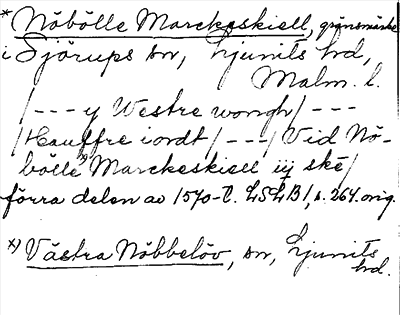 * Nöbölle Marckeskiell, gränsmärke
i Sjörups sn, Ljunits hrd,
Malm. l.
/--- y Westre wongh/---
/Hauffre iordt/---/Vid Nö-
bölle *) Marckeskiell iij ske/
förra delen av 1570-t. LSLB1, s. 264. orig.
*) Västra Nöbbelöv, sn, Ljunits
hrd.